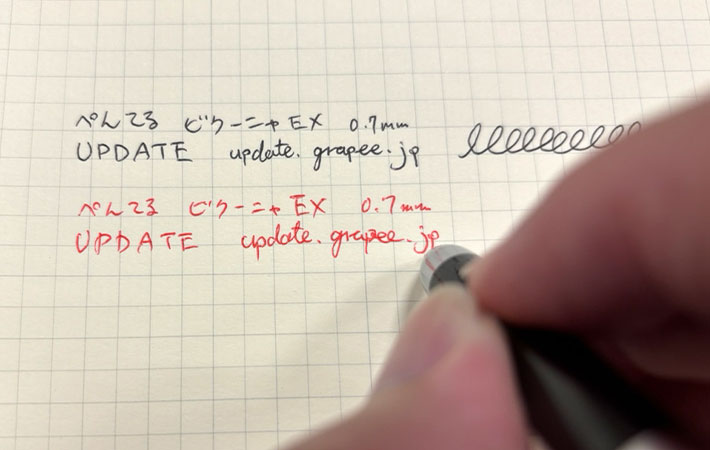 ぺんてる ビクーニャ EX 0.7mm
UPDATE update.grapee.jp
ぺんてる ビクーニャ EX 0.7mm
UPDATE update.grapee.jp